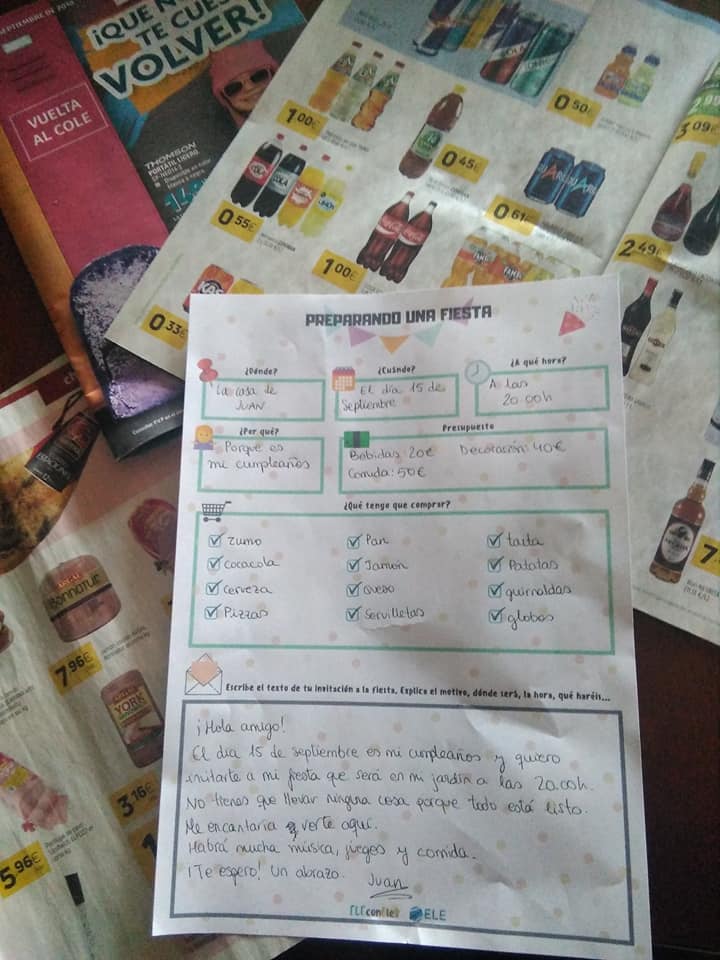 SEPTIEMBRE DE 2018
¡QUE NO
TE CUES
VOLVER!
VUELTA
AL COLE
THOMSON
PORTÁTIL LIGERO
1.00€
0.50€
3.09€
0.45€
COLA
LIMÓN
0.55€
0.61€
1.00€
2.49€
0.33€
PREPARANDO UNA FIESTA
¿Dónde?
La casa de
JUAN
¿Cuándo?
El día 15 de
Septiembre
¿A qué hora?
A las
20.00h
¿Por qué?
Porque es
mi cumpleaños
Presupuesto
Bebidas 20€ Decoración: 40€
Comida: 50€
¿Qué tengo que comprar?
Zumo
cocacola
cerveza
Pizzas
Pan
Jamón
Queso
Servilletas
tarta
Patatas
guirnaldas
globos
Escribe el texto de tu invitación a la fiesta. Explica el motivo, dónde será, la hora, qué haréis...
¡Hola amigo!
El día 15 de septiembre es mi cumpleaños y quiero
invitarte a mi fiesta que será en mi jardín a las 20.00h.
No tienes que llevar ninguna cosa porque todo está listo.
Me encantaría verte aquí.
Habrá mucha música, juegos y comida.
¡Te espero! Un abrazo. Juan
ELE
Bonnatur
7.96€
YORK
3.16€
5.96€
7